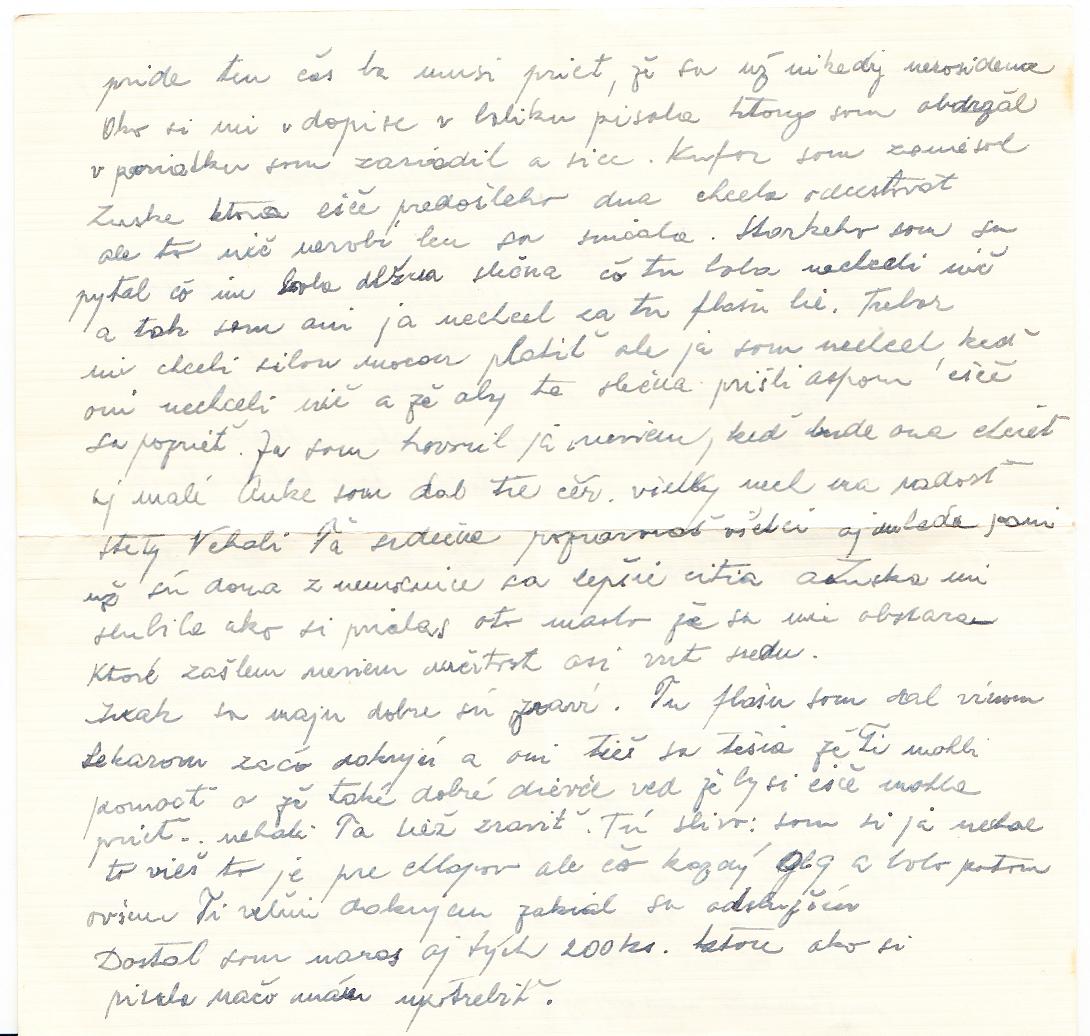 pride ten čas ba musi prict, že sa už nikedy nerozideme
Oko si mi v dopise v balíku písala ktorý som obdržal
v poriatku som zariadil a sice. Kufor som zaniesol
Zuske ktora ešče predošleho dna chcela odcestovat
ale to nič nerobi len sa smiala. Starkeho som sa
pytal čo im bola dlžna slečna čo tu bola nechceli nič
a tak som ani ja nechcel za tu flašu liė. Trebar
mi chceli silou mocou platiť ale ja som nechcel, keď
oni nechceli nič a že aby ta slečna prišli aspom ešče
sa popriet. Ja som hovoril ja neviem, keď bude ona chciet
aj malé Anke som dal tie čer. vielky nech ma radosť
štety Nehali Ťa srdečne pozravovať všetci aj mlada pani
už sú doma z nemocnice sa lepšie citia a Zuska mi
slubila ako si pridas oto maslo že sa mi obstara
Ktoré zašlem neviem určitost asi vut sredu.
Inak sa maju dobre sú zravi. Tu flašu som dal vinom
Lekarom začo dakujú a oni tiéš sa tešia že Ti mohli
pomocť a že také dobré dievče ved že by si ešče mohla
prict.. nehali Ťa tiež zraviť. Tú slivo: som si ja nehal
to vieš to je pre chlapov ale čo kazdý a bolo potom
ovšem Ti velmi dakujem zakial sa odslúžim
Dostal som naras aj tých 200 ks. ktore ako si
pisala načo mám upotrebiť.